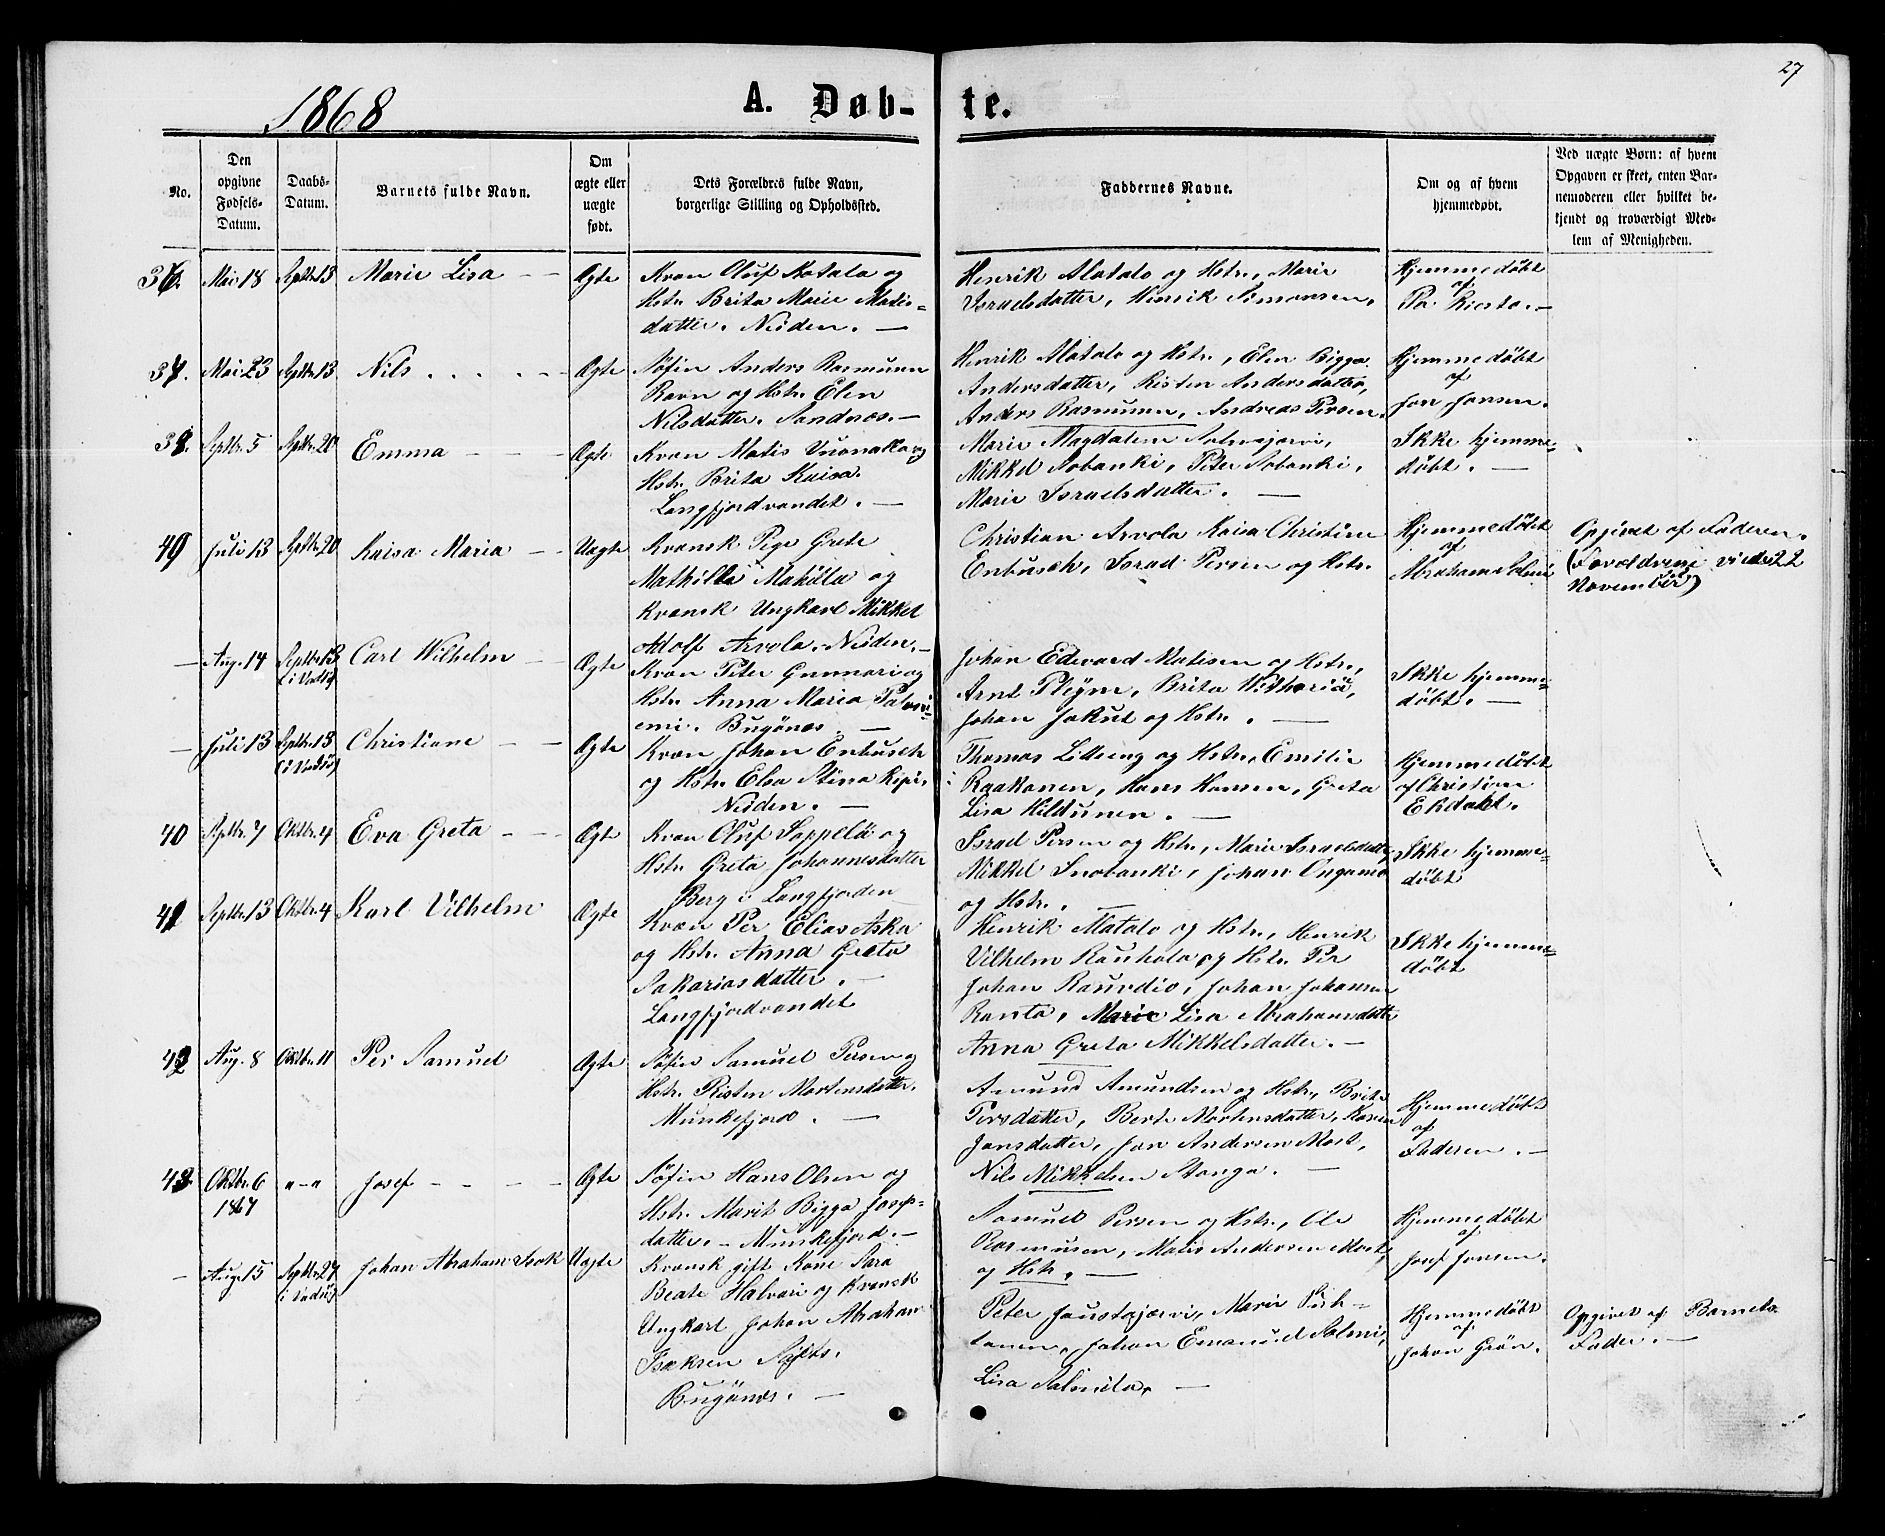 27
1868
A. Døb-
te.
No.
Den
opgivne
Fødsels-
Datum.
Daabs-
Datum.
Barnets fulde Navn.
Om
ægte eller
uægte
født.
Dets Forældres fulde Navn,
borgerlige Stilling og Opholdssted.
Faddernes Navne.
Om og af hvem
hjemmedøbt.
Ved uægte Børn: af hvem
Opgaven er skeet, enten Bar-
nemoderen eller hvilket be-
kjendt og troværdigt Med-
lem af Menigheden.
36. Mai 18 Septbr. 13 Marie Lisa - - Ægte
Kvæn Oluf Kotala og
Hstr. Brita Marie Matis-
datter. Neiden. -
Henrik Alatalo og Hstr., Marie
Israelsdatter, Henrik Simonsen,
Hjemmedøbt
af
Pa. -
37. Mai 23 Septbr. 13 Nils . . . . - - Ægte
Søfin Anders Rasmusen
Ravn og Hstr. Elen
Nilsdatter. Sandnæs. -
Henrik Alatalo og Hstr., Elen Bigga
Andersdatter, Risten Andersdatter,
Anders Rasmusen, Andreas Persen.
Hjemmedøbt
af
Jon Jonsen.
38. Septbr. 5 Septbr. 20 Emma - - - Ægte
Kvæn Matis og
Hstr. Brita Kaisa.
Langfjordvandet. -
Marie Magdalena
Mikkel Sobanki, Peter Sobanki,
Marie Israelsdatter. -
Ikke hjemme-
døbt. -
Juli 13 Septbr. 20 Kaisa Maria - - Uægte
Kvænsk Pige Grete
Mathilda Mahilla og
Kvænsk Ungkarl Mikkel
Adolf Arvola. Neiden. -
Christian Arvola Kaisa Christine
Enbusch, Israel Persen og Hstr.
Hjemmedøbt
af
Abraham Salmi
Opgivet af Faderen.
(Forældrene viede 22
November)
- Aug. 14 Septbr. 13 Carl Wilhelm - Ægte
Kvæn Peter Gunnari og
Hstr. Anna Maria
Bugönæs. -
Johan Edevard Matisen og Hstr.,
Arnt Pleÿm, Brita
Johan Jakul og Hstr. -
Ikke hjemme-
døbt. -
- Juli 13 Septbr. 13 Christiane - - Ægte
(i Vadsö)
Kvæn Johan Enbusch
og Hstr. Elsa Stina Kipi.
Neiden. -
Thomas og Hstr., Emilie
Raakonen, Hans Hansen, Greta
Lisa Hildunen. -
Hjemmedøbt
af Christian
Ekdahl.
40 Septbr. 7 Oktbr. 4 Eva Greta - - Ægte
Kvæn Oluf Sappelä og
Hstr. Greta Johannesdatter
Berg i Langfjorden
Israel Persen og Hstr., Marie Israelsdatter,
Mikkel Snobanki, Johan Ongamo
og Hstr. -
Ikke hjemme-
døbt
Septbr. 13 Oktbr. 4 Karl Vilhelm Ægte
Kvæn Per Elias Aska
og Hstr. Anna Greta
Sakariasdatter. -
Langfjordvandet
Henrik Alatalo og Hstr., Henrik
Vilhelm Rauhala og Hstr. Per
Johan Johan Johansen
Ranta, Marie Lisa Abrahamsdatter
Anna Greta Mikkelsdatter. -
Ikke hjemme-
døbt
42 Aug. 8 Oktbr. 11 Per Samuel Ægte
Søfin Samuel Persen og
Hstr. Risten Mortensdatter.
Munkefjord. -
Amund Amundsen og Hstr., Brita
Persdatter, Berte Mortensdatter, Karen
Jonsdatter, Jon Andersen Mort,
Nils Mikkelsen Stanga. -
Hjemmedøbt
af
Faderen. -
43 Oktbr. 6 "-" Josef - - - - Ægte
1867
Søfin Hans Olsen og
Hstr. Marit Bigga Josep-
datter. - Munkefjord. -
Samuel Persen og Hstr., Ole
Rasmusen, Matis Andersen Mort,
og Hstr. -
Hjemmedøbt
af
Josef Jonsen.
- Aug. 15 Septbr. 27 Johan Abraham Isak Uægte
i Vadsö
Kvænsk gift Kone Sara
Beate Halvari og Kvænsk
Ungkarl Johan Abraham
Isaksen
Bugönæs. -
Peter Marie
Johan Emanuel Salmi,
Lisa -
Hjemmedøbt
af
Johan Grön.
Opgivet af Barnets
Fader. -